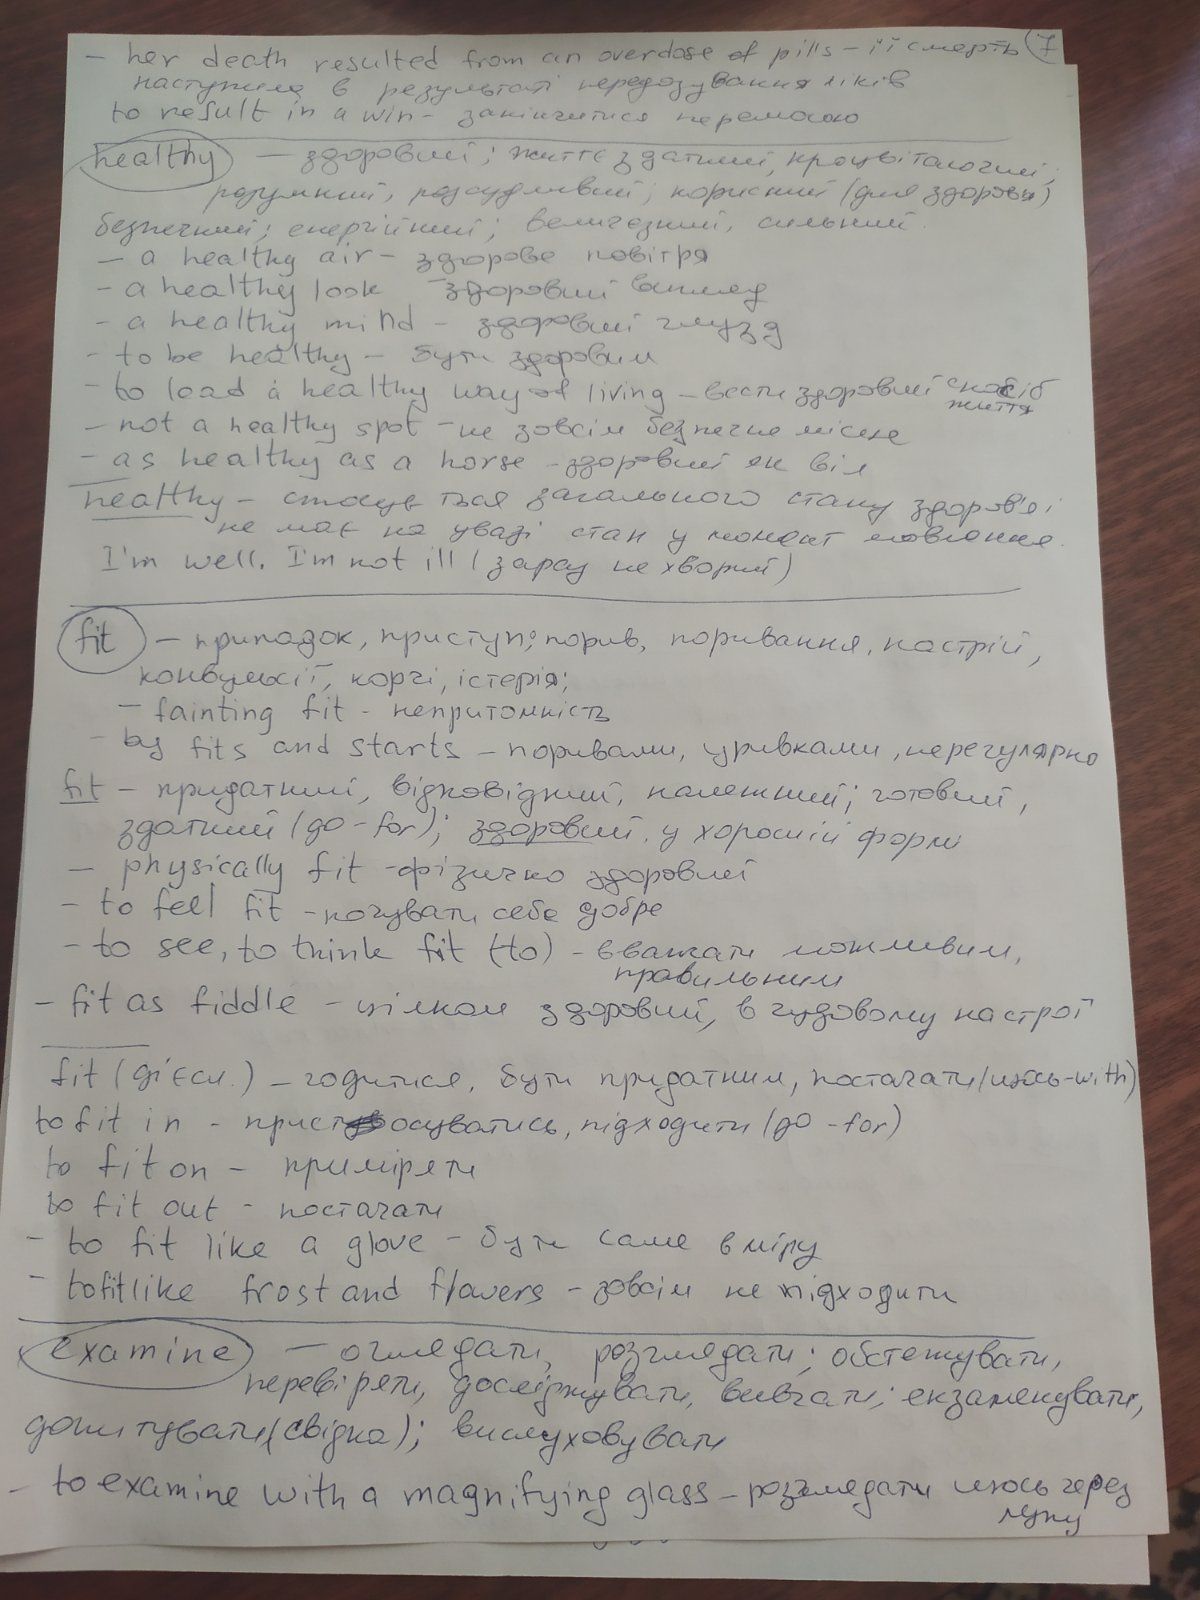 - her death resulted from an overdose of pills - її смерть 7
наступила в результаті передозування ліків
to result in a win - закінчитися перемогою
healthy - здоровий; життєздатний, процвітаючий;
розумний, розсудливий; корисний (для здоров'я)
безпечний; енергійний; величезний, сильний.
- a healthy air - здорове повітря
- a healthy look - здоровий вигляд
- a healthy mind - здоровий глузд
- to be healthy - бути здоровим
- to load a healthy way of living - вести здоровий спосіб
життя
- not a healthy spot - не зовсім безпечне місце
- as healthy as a horse - здоровий як віл
healthy - стосується загального стану здоров'я і
не має на увазі стан у момент мовлення.
I'm well. I'm not ill (зараз не хворий)
fit - припадок, приступ; порив, поривання, настрій,
конвульсії, корчі, істерія;
- fainting fit - непритомність
- by fits and starts - поривами, уривками, нерегулярно
fit - придатний, відповідний, належний; готовий,
здатний (до - for); здоровий, у хорошій формі
- physically fit - фізично здоровий
- to feel fit - почувати себе добре
- to see, to think fit (to) - вважати можливим,
правильним
- fit as fiddle - цілком здоровий, в чудовому настрої
fit (дієсл.) - годитися, бути придатним, постачати (щось - with)
to fit in - пристосуватись, підходити (до - for)
to fit on - приміряти
to fit out - постачати
- to fit like a glove - бути саме в міру
- to fit like frost and flavers - зовсім не підходити
examine - оглядати, розглядати; обстежувати,
перевіряти, досліджувати, вивчати; екзаменувати,
допитувати (свідка); вислуховувати
- to examine with a magnifying glass - розглядати щось через
лупу